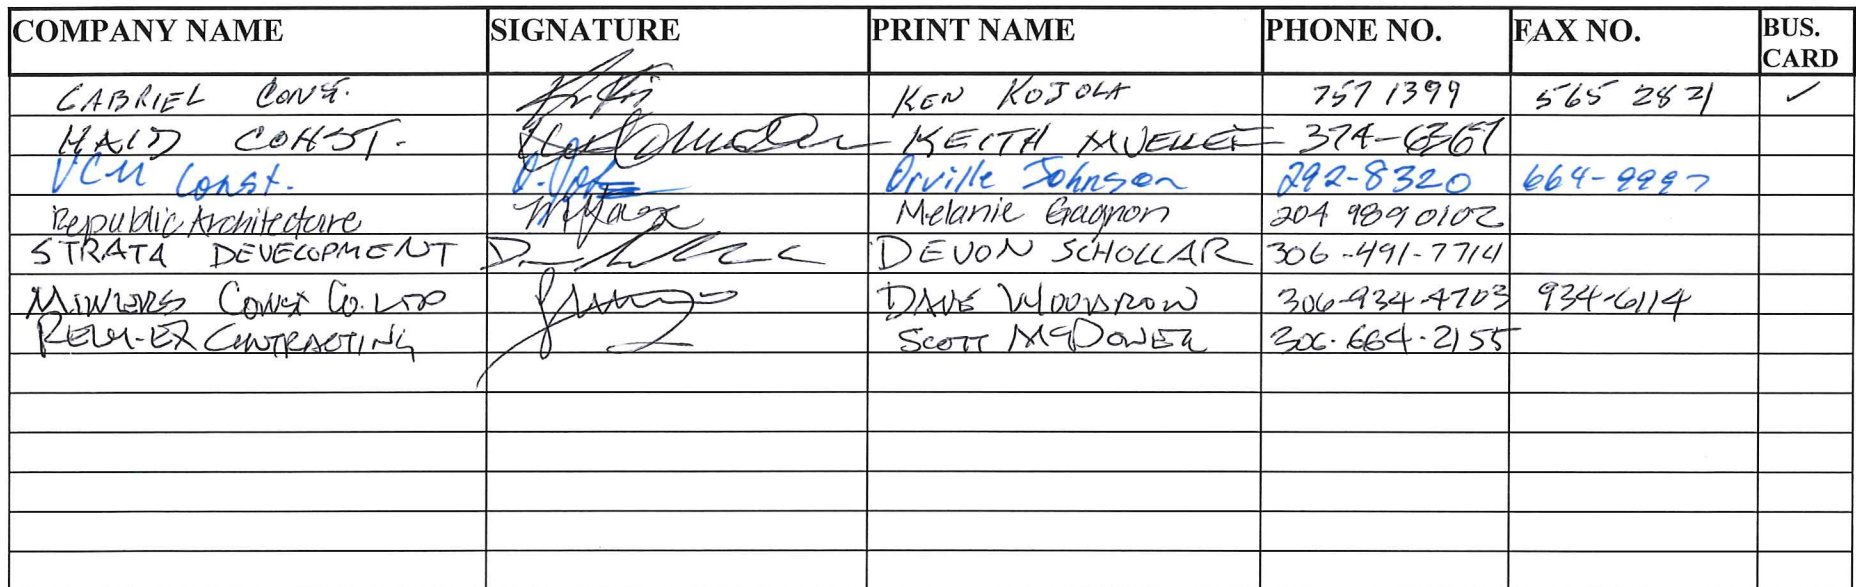 COMPANY NAME SIGNATURE PRINT NAME PHONE NO. FAX NO. BUS. CARD
GABRIEL CONS. KEN KOJOLA 757 1399 565 2821 ✓
HAID CONST. KEITH MUELLER 374-6367
VCM Const. Orville Johnson 292-8320 664-9997
Republic Architecture Melanie Gagnon 204 989 0102
STRATA DEVELOPMENT DEVON SCHOLLAR 306-491-7714
MINERS CONST CO. LTD DAVE WOODROW 306-934-4703 934-6114
CONTRACTING SCOTT 306-664-2155